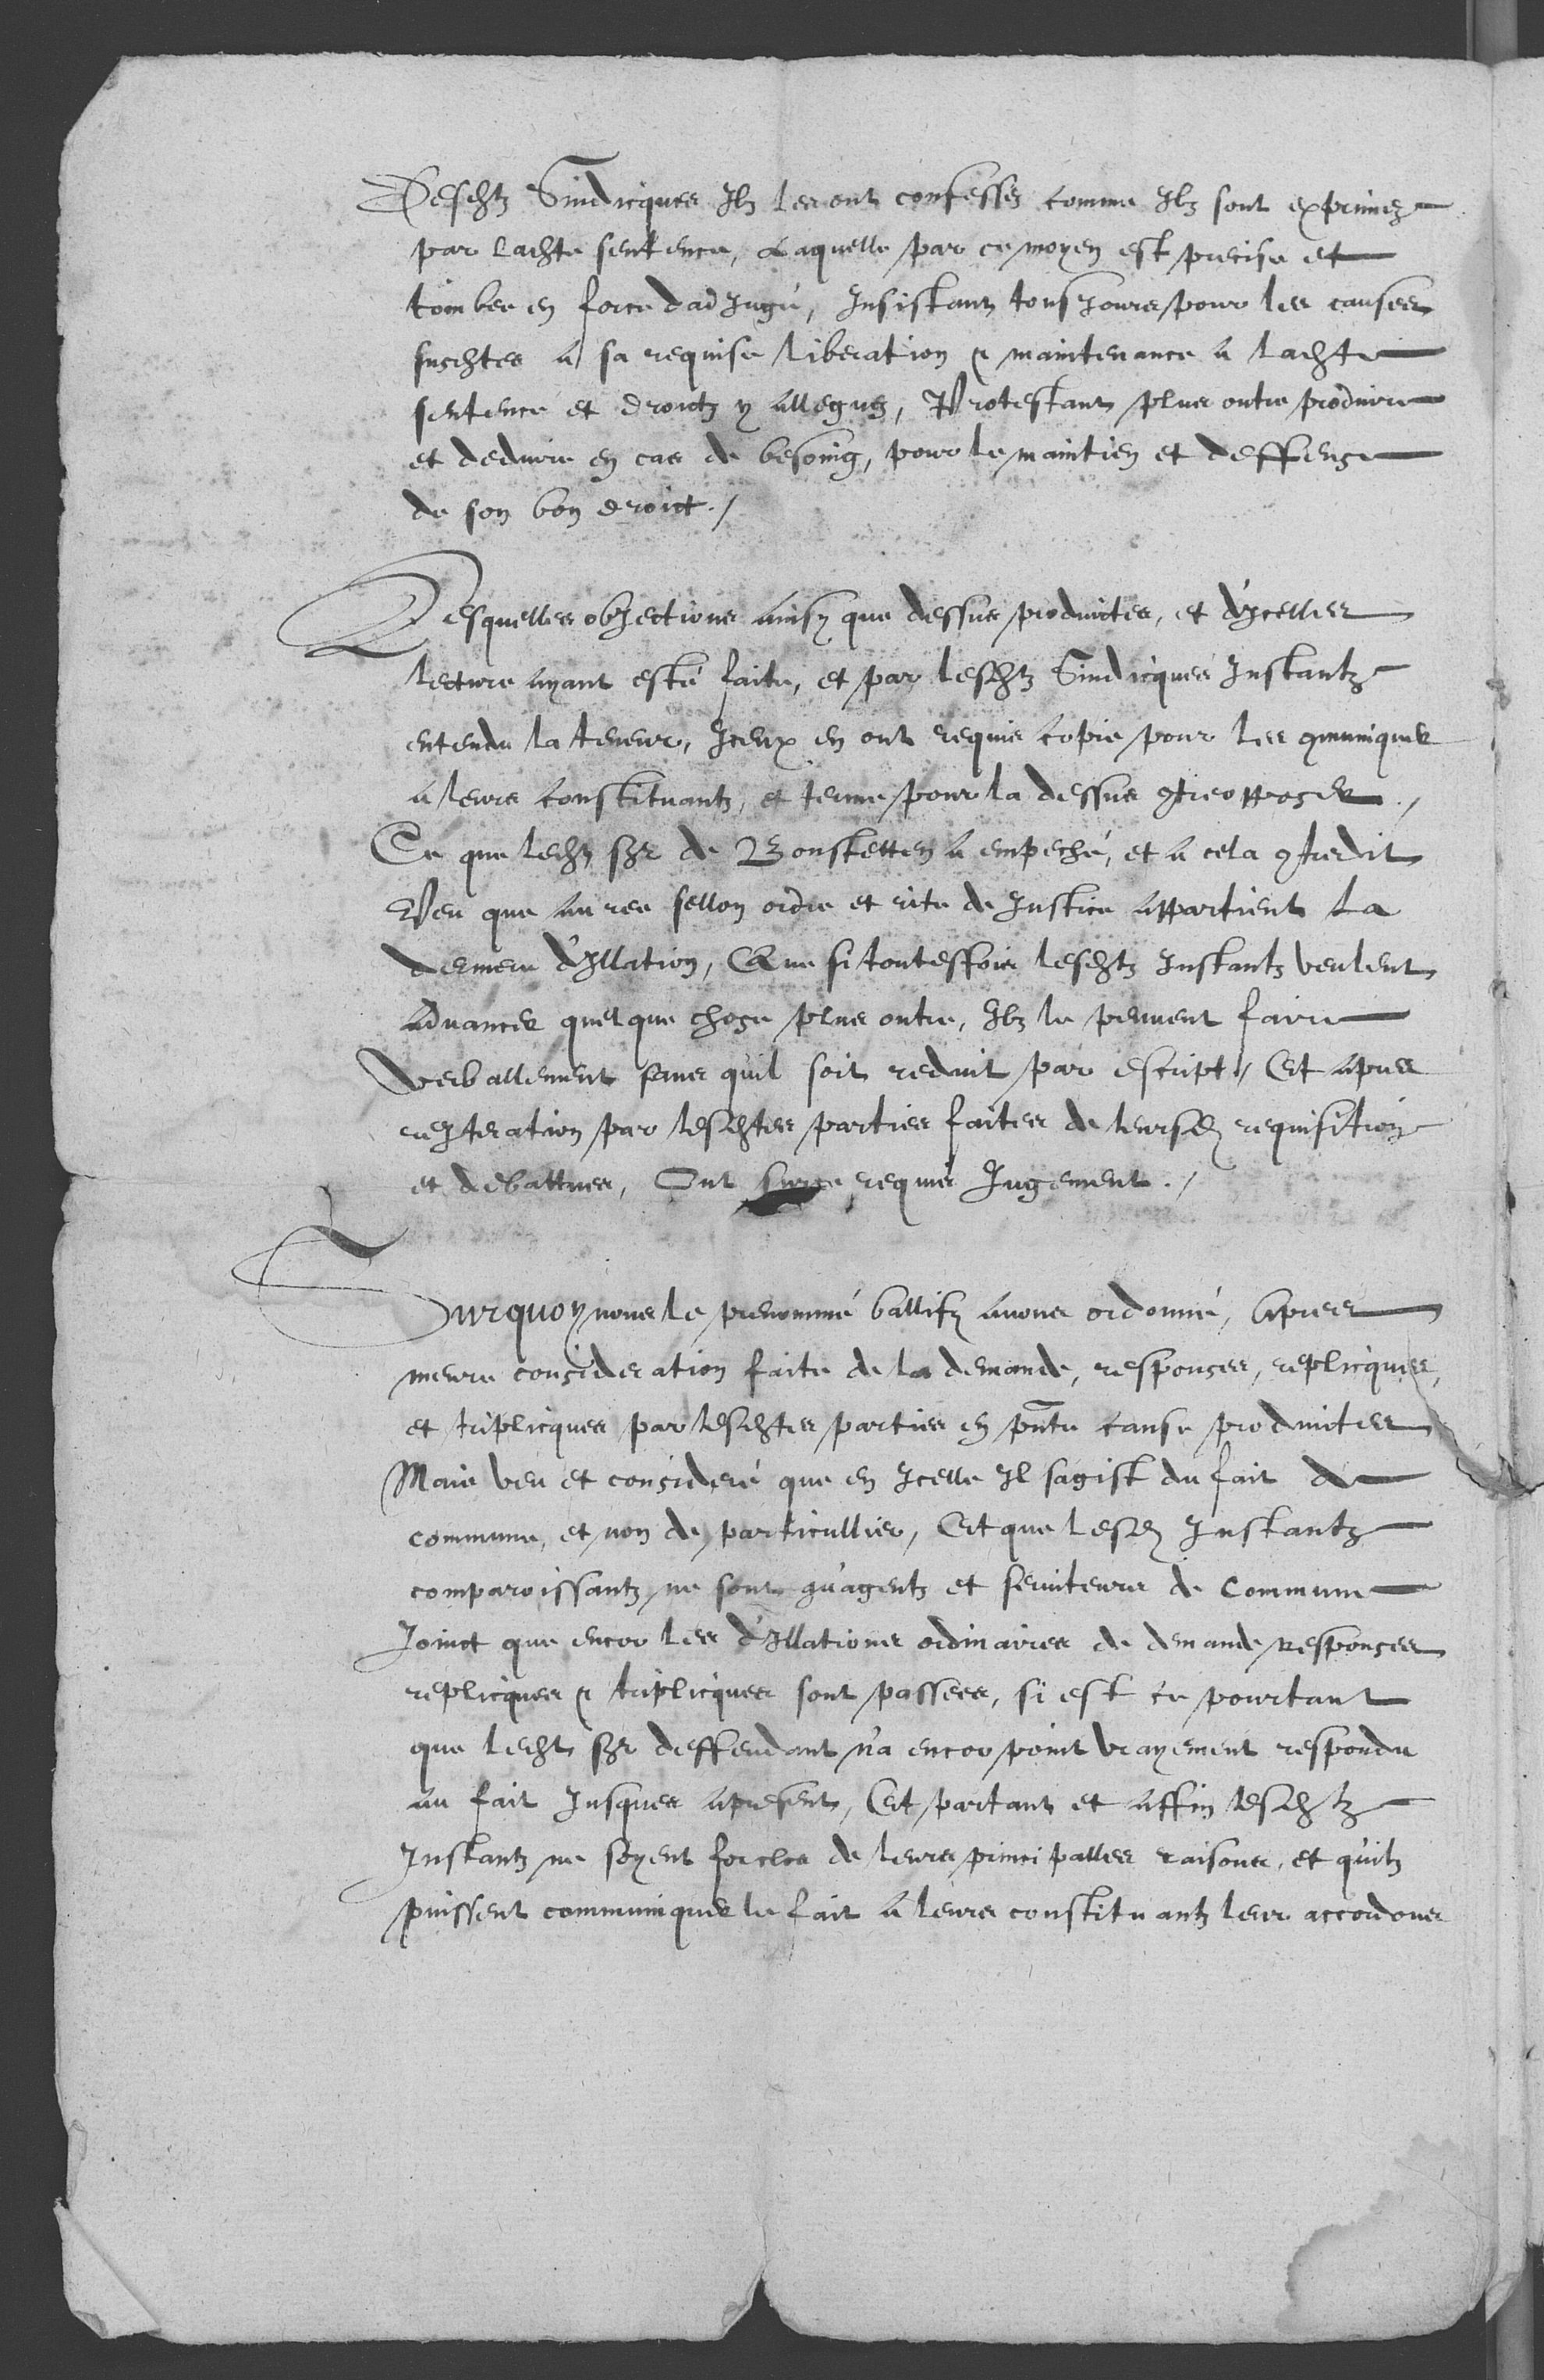 Desdhtz Sindicques Ilz les ont confesséz comme Ilz sont exprimez
par ladhte sentence, Laquelle par ce moyen est precise et
tombee en force dadJugé, Insistant tousJours pour les causes
susdhtes a sa requise liberation & maintenance a ladhte
sentence et droictz y alleguez, Protestant plus outre produire
et deduire en cas de besoing, pour le maintien et deffense
de son bon droict ./
Desquelles objections ainsy que dessus produictes, et d'Icelles
lecture ayant esté faite, et par lesdhtz Sindicques Instantz
entendu la teneur, Iceux en ont requis copie pour les 9muniquer
a leurs constituantz, et terme pour la dessus 9treopposer ./
Ce que ledht sgr de Bonstetten a empeché, et a cela 9tredit
Veu que au ree sellon ordre et rite de Justice appartient la
derniere d'Illation, Que si toutesffois lesdhtz Instantz veulent
advancer quelque chose plus outre, Ilz le peuvent faire
verballement sans qu'il soit reduit par escript, Et apres
reIteration par lesdhtes parties faites de leursd requisition
et debattues, Ont surce requis Jugement ./
Surquoy nous le prenommé ballifz avons ordonné, Apres
meure consideration faite de la demande, responces, replicques,
et triplicques par lesdhtes parties en pnte cause produictes
Mais veu et consideré que en Icelle Il sagist du fait de
commune, et non de particullier, Et que lesd Instantz
comparoissantz ne sont qu'agentz et serviteurs de Commune
Joinct que encor les d'Illations ordinaires de demande responces
replicques & triplicques sont passees, si est ce pourtant
que ledht sgr deffendant n'a encor point vrayement respondu
au fait Jusques apresent, Et partant et affin lesdhtz
Instantz ne soyent forclos de leurs principalles raisons, et quilz
puissent communiquer le fait a leurs constituantz leur accordons